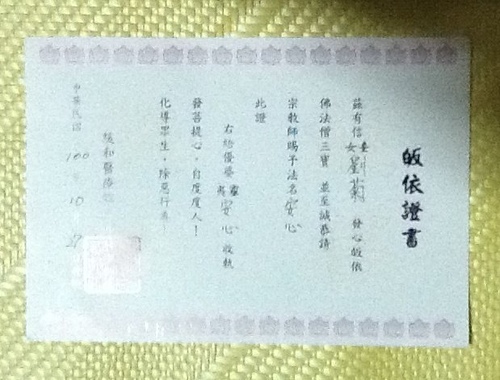 皈依證書
茲有信女 發心皈依
佛法僧三寶 並至誠恭請
宗教師賜予法名安心
此證
右給優婆 安心 收執
發菩提心，自度度人！
化導眾生，除惡行善！
緩和醫療
中華民國 100 年 10